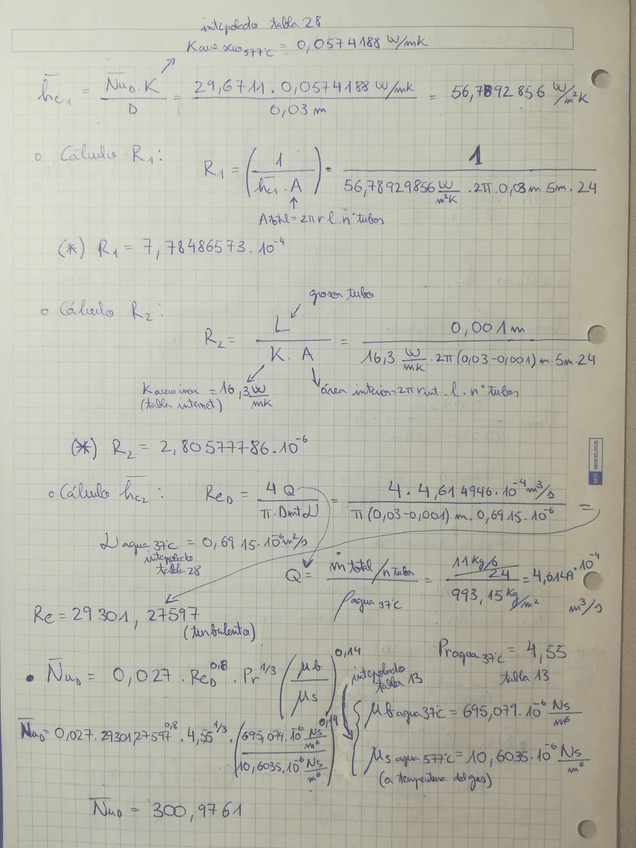 intepolado tabla 28
K aire seco 577°C = 0,0574188 W/mK
h̄c₁ = N̄u_D · K / D = 29,6711 · 0,0574188 W/mK / 0,03 m = 56,7892856 W/m²K
o Cálculo R₁: R₁ = (1 / h̄c₁ · A) = 1 / 56,78929856 W/m²K · 2π · 0,03 m 5m · 24
A total = 2π r l · n° tubos
(*) R₁ = 7,78486573 · 10⁻⁴
grosor tubo
o Cálculo R₂: R₂ = L / K · A = 0,001 m / 16,3 W/mK · 2π (0,03-0,001) m · 5m · 24
K acero inox = 16,3 W/mK
(tabla internet)
área interior = 2π r int · l · n° tubos
(*) R₂ = 2,80577786 · 10⁻⁶
o Cálculo h̄c₂: Re_D = 4 Q / π · D int ν = 4 · 4,614946 · 10⁻⁴ m³/s / π (0,03-0,001) m · 0,6915 · 10⁻⁶ =
ν agua 37°C = 0,6915 · 10⁻⁶ m²/s
intepolado
tabla 28
Q = ṁ total / n tubos / ρ agua 37°C = 11 kg/s / 24 / 993,15 kg/m² = 4,6149 · 10⁻⁴ m³/s
Re = 29301,27597
(turbulento)
• N̄u_D = 0,027 · Re_D^0,8 · Pr^1/3 (μb / μs)^0,14
Pr agua 37°C = 4,55
tabla 13
intepolado
tabla 13
μb agua 37°C = 695,079 · 10⁻⁶ Ns/m⁶
μs agua 577°C = 10,6035 · 10⁻⁶ Ns/m⁶
(a temperatura del gas)
N̄u_D = 0,027 · 29301,27597^0,8 · 4,55^1/3 · (695,079 · 10⁻⁶ Ns/m⁶ / 10,6035 · 10⁻⁶ Ns/m⁶)^0,14
N̄u_D = 300,9761
MIQUELRIUS